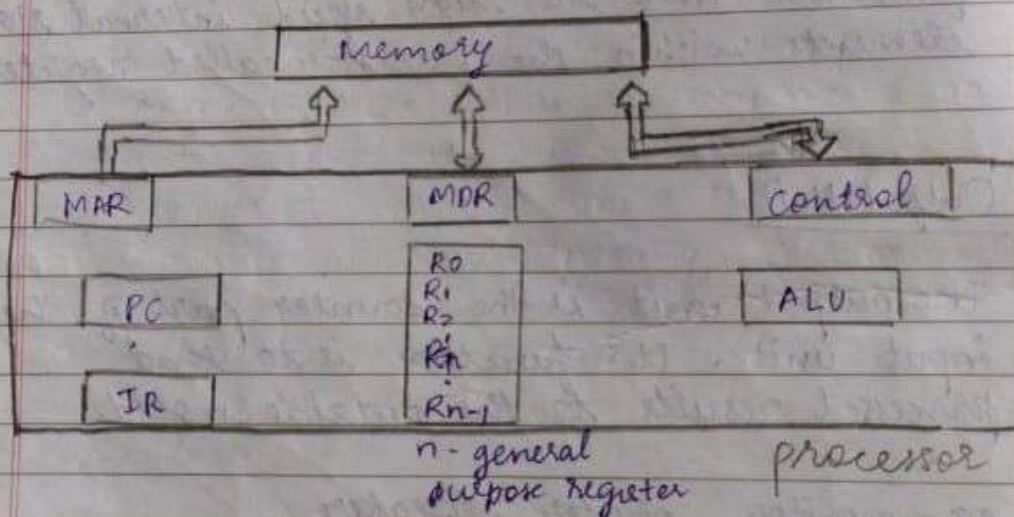 Memory
MAR
MDR
Control
PC
R0
R1
R2
Rn
Rn-1
ALU
IR
n- general
purpose register
processor